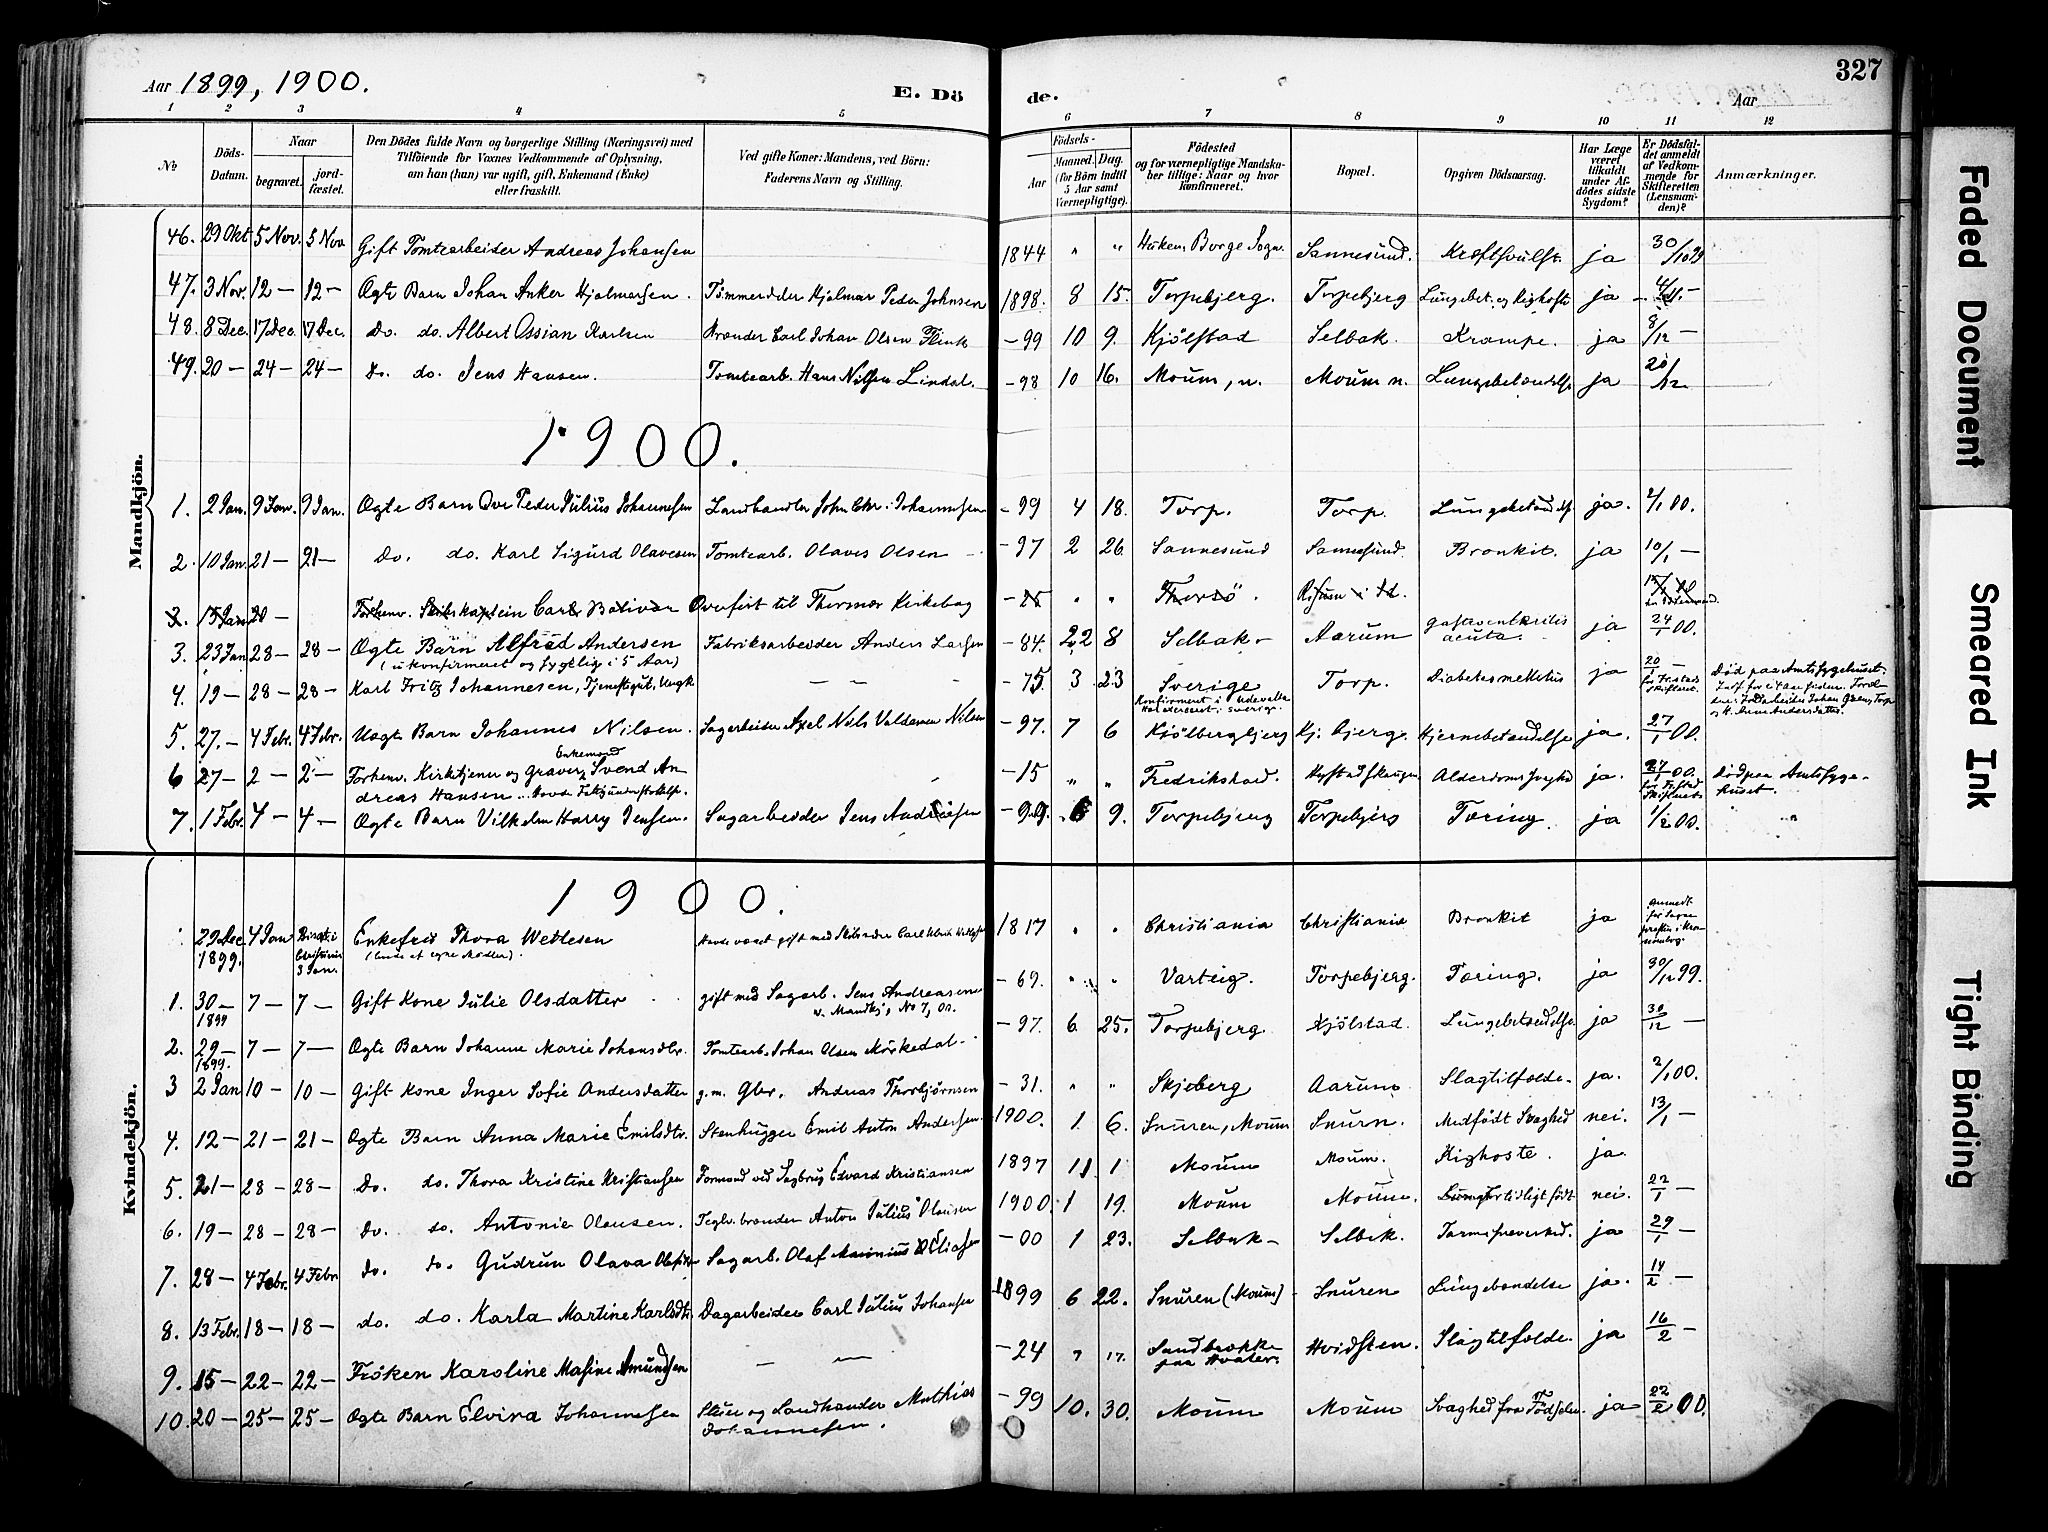 Aar 1899, 1900. E. Dö de. Aar 327
1 2 3 4 5 6 7 8 9 10 11 12
№ Döds-Datum. Naar begravet. jordfæstet. Den Dödes fulde Navn og borgerlige Stilling (Næringsvei) med Tilföiende for Voxnes Vedkommende af Oplysning, om han (hun) var ugift, gift, Enkemand (Enke) eller fraskilt. Ved gifte Koner: Mandens, ved Börn: Faderens Navn og Stilling. Födsels- Aar Maaned. Dag. (for Börn indtil 5 Aar samt Værnepligtige). Födested og for værnepligtige Mandskaber tillige: Naar og hvor konfirmeret. Bopæl. Opgiven Dödsaarsag. Har Læge været tilkaldt under Afdödes sidste Sygdom? Er Dödsfaldet anmeldt af Vedkommende for Skifteretten (Lensmanden)? Anmærkninger.
Mandkjön.
46. 29 Okt 5 Nov. 5 Nov. Gift Tomtearbeider Andreas Johansen 1844 " " Borge Sogn. Sannesund. Kræftsvulst. ja 30/10 99
47. 3 Nov. 12 — 12 — Ægte Barn Johan Anker Hjalmarsen. Hjalmar Peder Johnsen 1898. 8 15. Torpebjerg. Torpebjerg Lungebet. og Kighoste ja 4/11 —
48. 8 Dec. 17 Dec. 17 Dec. Do. do. Albert Ossian Karlsen Brænder Carl Johan Olsen Flink — 99 10 9. Kjölstad Selbak. Krampe. ja 8/12 —
49. 20 — 24 — 24 — Do. do. Jens Hansen. Tomtearb. Hans Nilsen Lindal. — 98 10 16. Moum, n. Moum n. Lungebetændelse ja 20/12
1900.
1. 2 Jan. 9 Jan. 9 Jan. Ægte Barn Ove Peder Julius Johannesen Landhandler John Chr. Johannesen — 99 4 18. Torp. Torp. Lungebetændelse ja. 2/1 00.
2. 10 Jan. 21 — 21 — Do. do. Karl Sigurd Olavesen Tomtearb. Olaves Olsen — 97 2 26 Sannesund Sannesund. Bronkit. ja 10/1 —
3. 15 Jan 20 — Forhenv. Skibskaptein Carl Bolivar Overfört til Thermær Kirkebog — 25 " " Thorsö.
3. 23 Jan 28 — 28 — Ægte Barn Alfred Andersen Fabriksarbeider Anders Larsen — 84. 22 8 Selbak — Aarum acuta. ja 24/1 00.
(ukonfirmeret og sygelig i 5 Aar)
4. 19 — 28 — 28 — Karl Fritz Johannesen, Tjenestegut, Ungk — — — 75 3 23 Sverige Torp. Diabetes mellitus ja 20/1 — Död paa Amtssygehuset.
Konfirmeret i Udevalla
5. 27. — 4 Febr. 4 Febr. Uægte Barn Johannes Nilsen. Sagarbeider Axel Nils Valdemar Nilsen — 97. 7 6 Kjölbergbjerg Kj. bjerg. Hjernebetændelse ja. 27/1 00.
6 27 — 2 — 2 — Forhenv. Kirketjener og Graver, Enkemand Svend Andreas Hansen. — 15 " " Fredrikstad. Alderdomssvaghed ja. 27/1 00. Död paa Amtssygehuset.
7. 1 Febr. 4 — 4 — Ægte Barn Vilhelm Harry Jensen. Sagarbeider Jens Andreasen — 99. 6 9. Torpebjerg Torpebjerg Tæring. ja 1/2 00. "
Kvindekjön.
1900.
29 Dec 1899. 4 Jan Christiania 3 Jan. Enkefru Thora Wetlesen 1817 " " Christiania Christiania Bronkit ja
1. 30 — 1899 7 — 7 — Gift Kone Julie Olsdatter gift med Sagarb. Jens Andreasen v. Mandkj. No 7, 00. — 69. " " Varteig. Torpebjerg. Tæring. ja 30/12 99.
2. 29 — 1899. 7 — 7 — Ægte Barn Johanne Marie Johansdtr. Tomtearb. Johan Olsen Mörkedal — 97. 6 25. Torpebjerg Kjölstad. Lungebetændelse. ja 30/12 —
3 2 Jan 10 — 10 — Gift Kone Inger Sofie Andersdatter g.m. Gbr. Andreas Thorbjörnsen — 31. " " Skjeberg Aarum. Slagtilfælde. ja. 2/1 00.
4. 12 — 21 — 21 — Ægte Barn Anna Marie Emilsdtr. Stenhugger Emil Anton Andersen. 1900. 1 6. Snuren, Moum Snurn. Medfödt Svaghed nei. 13/1 —
5. 21 — 28 — 28 — Do. do. Thora Kristine Kristiansen Formand ved Sagbrug Edvard Kristiansen 1897 11 1 Moum Moum. Kighoste. ja.
6. 19 — 28 — 28 — Do. do. Antonie Olausen. Teglv. brænder Anton Julius Olausen 1900. 1 19. Moum Moum. for tidligt födt nei. 22/1 —
7. 28 — 4 Febr. 4 Febr. Do. do. Gudrun Olava Olafsdtr. Sagarb. Olaf Marinius Eliasen — 00 1 23. Selbak — Selbak. ja 29/1 —
8. 13 Febr. 18 — 18 — do. do. Karla Martine Karlsdtr. Dagarbeider Carl Julius Johansen 1899 6 22. Snuren (Moum) Snuren Lungebændelse ja. 14/2 —
9. 15 — 22 — 22 — Fröken Karoline Masine Amundsen — — — 24 " 17. Sandbrække paa Hvaler. Hvidsten. Slagtilfælde. ja 16/2 —
10. 20 — 25 — 25 — Ægte Barn Elvira Johannesen og Landhandler Mathias Johannesen. — 99 10. 30. Moum Moum Svaghed fra Födselen ja 22/2 00.
Faded Document
Smeared Ink
Tight Binding